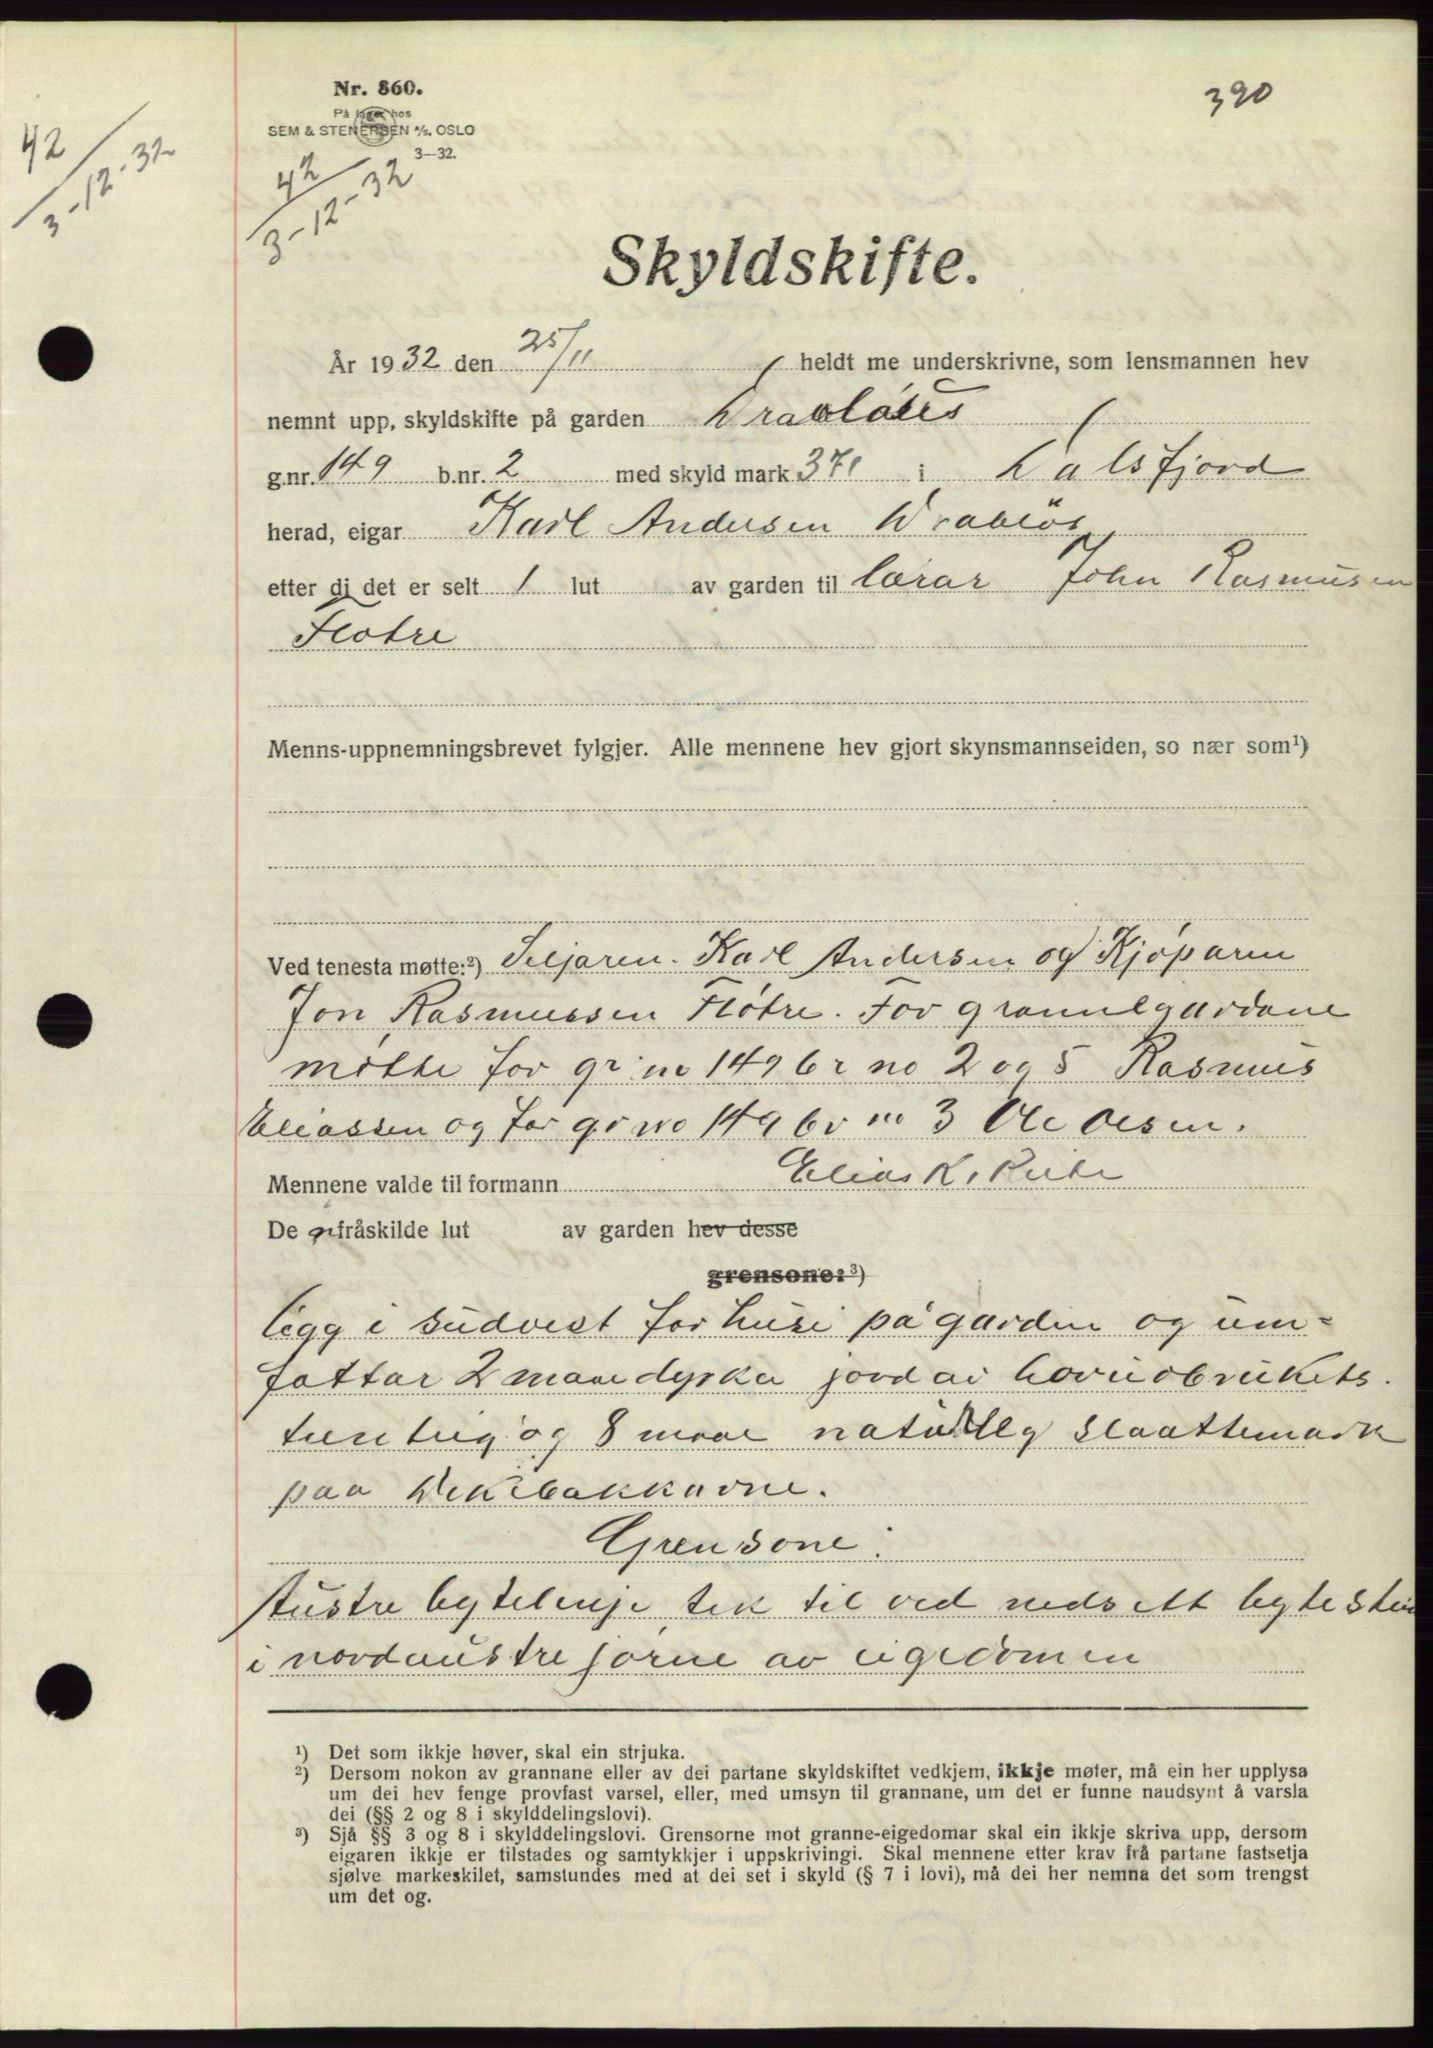 Nr. 860.
På lager hos
SEM & STENERSEN A/S, OSLO
3—32.
390
42
3-12-32
42
3-12-32
Skyldskifte.
År 1932 den 25/11 heldt me underskrivne, som lensmannen hev
nemnt upp, skyldskifte på garden
g.nr. 149 b.nr. 2 med skyld mark 371 i Dalsfjord
herad, eigar Karl Andersen
etter di det er selt 1 lut av garden til lærar John Rasmusen
Flotre
Menns-uppnemningsbrevet fylgjer. Alle mennene hev gjort skynsmannseiden, so nær som¹)
Ved tenesta møtte:²) Seljaren Karl Andersen og Kjøparen
Jon Rasmussen Fløtre. For grannegardane
møtte for gr no 149 br no 2 og 5 Rasmus
Eliassen og for gr no 149 br no 3 Ole Olsen.
Mennene valde til formann Elias K.
De fråskilde lut av garden hev desse
grensone:³)
ligg i sudvest for husi på garden og um-
fattar 2 maal dyrka jord av hovudbrukets
og 8 maal naturleg slaattemark
paa
Grensone:
Austre bytelinje tek til ved nedsett bytestein
i nordaustre jørne av eigedomen
¹) Det som ikkje høver, skal ein strjuka.
²) Dersom nokon av grannane eller av dei partane skyldskiftet vedkjem, ikkje møter, må ein her upplysa
um dei hev fenge provfast varsel, eller, med umsyn til grannane, um det er funne naudsynt å varsla
dei (§§ 2 og 8 i skylddelingslovi).
³) Sjå §§ 3 og 8 i skylddelingslovi. Grensorne mot granne-eigedomar skal ein ikkje skriva upp, dersom
eigaren ikkje er tilstades og samtykkjer i uppskrivingi. Skal mennene etter krav frå partane fastsetja
sjølve markeskilet, samstundes med at dei set i skyld (§ 7 i lovi), må dei her nemna det som trengst
um det og.